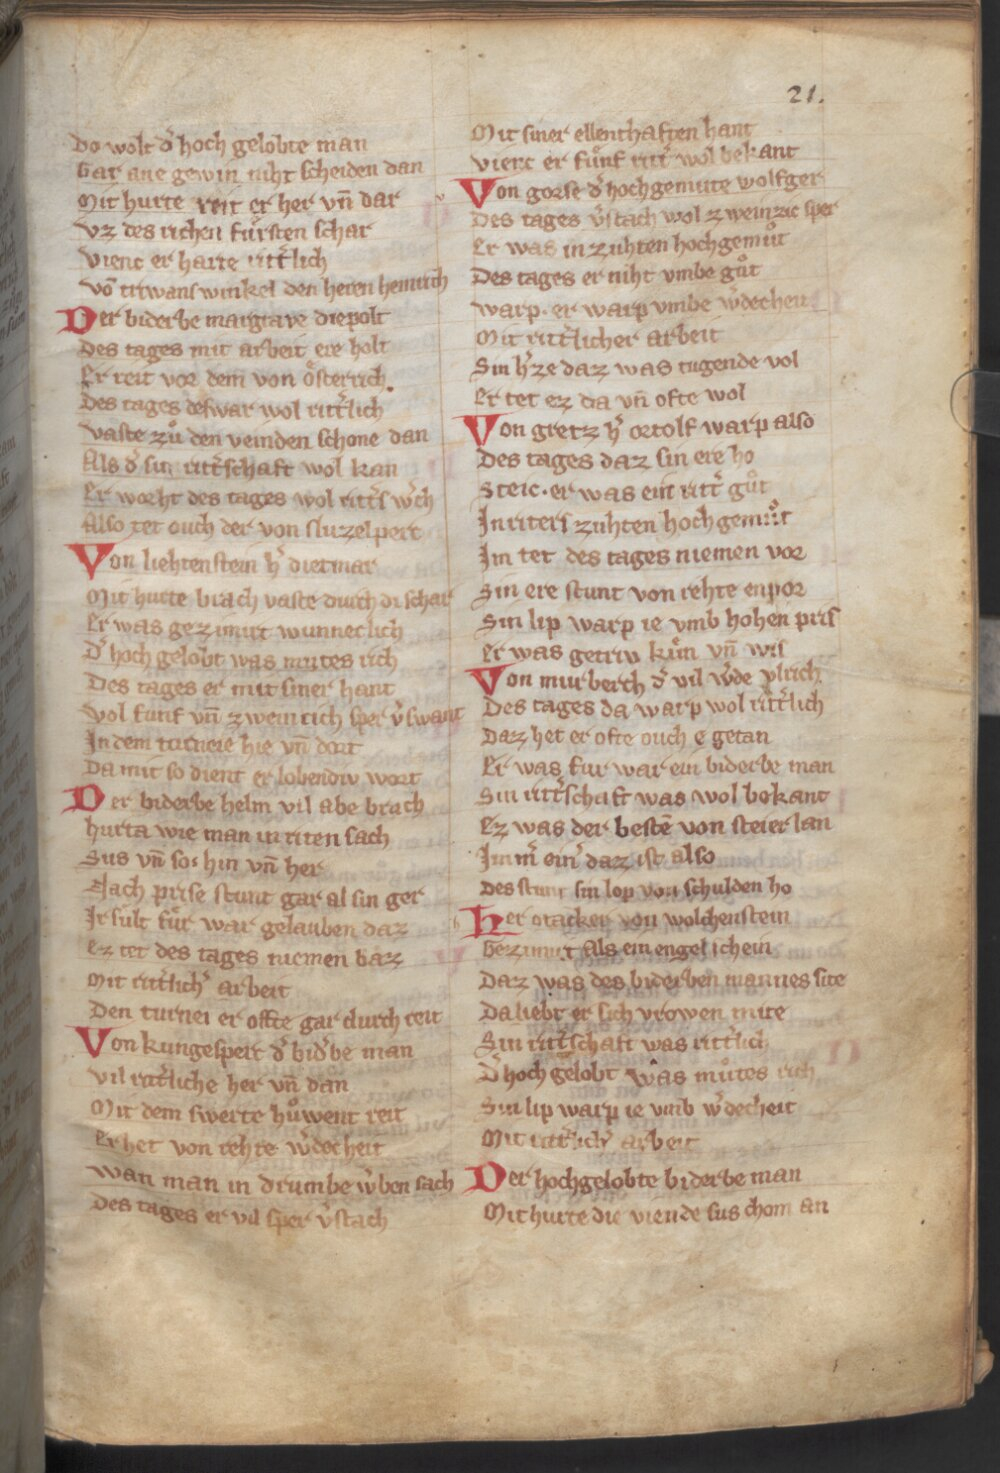 21.
Do wolt d̛ hoch gelobte man
Gar ane gewin niht scheiden dan
Mit hurte reit er her vn̄ dar
Vz des richen fursten schar
Vienc er harte ritt̛lich
Vō trwanswinkel den heren heinrich
Der biderbe margrave diepolt
Des tages mit arbeit ere holt
Er reit vor dem von osterrich.
Des tages deswar wol ritt̛lich
Vaste zuͦ den veinden schone dan
Als d̛ sin ritt̛schaft wol kan
Er worht des tages wol ritt̛s w̛ch
Also tet ouch der von sluzelpert
Von liehtenstein h̛ dietmar
Mit hurte brach vaste durch di schar
Er was gezimirt wunneclich
D̛ hoch gelobt was mutes rich
Des tages er mit siner hant
Wol funf vn̄ zweintich sper v̛swant
In dem turneie hie vn̄ dort
Da mit so dient er lobendiv wort
Der biderbe helm vil abe brach
hurta wie man in riten sach
Sus vn̄ so: hin vn̄ her
Nach prise stunt gar al sin ger
Ir sult fur war gelauben daz
Ez tet des tages niemen baz
Mit ritt̛lich̛ arbeit
Den turnei er offte gar durch reit
Von kungespert d̛ bid̛be man
Vil ritt̛liche her vn̄ dan
Mit dem swerte huͦwent reit
Er het von rehte w̛decheit
Wan man in drumbe w̛ben sach
Des tages er vil sper v̛stach
Mit siner ellenthaften hant
Vienc er funf ritt̛ wol bekant
Von gorse d̛ hochgemute wolfger
Des tages v̛stach wol zweinzic sper
Er was in zuhten hochgemuͦt
Des tages er niht vmbe guͦt
Warp. er warp vmbe w̛decheit
Mit ritt̛licher arbeit
Sin h̛ze daz was tugende vol
Er tet ez da vn̄ ofte wol
Von gretz h̛ ortolf warp also
Des tages daz sin ere ho
Steic. er was ein ritt̛ guͦt
In riters zuhten hochgemuͦt
Im tet des tages niemen vor
Sin ere stunt von rehte enpor
Sin lip warp ie vmb hohen pris
Er was getriv kuͤn vn̄ wis
Von murberch d̛ vil w̛de vlrich
Des tages da warp wol ritt̛lich
Daz het er ofte ouch e getan
Er was fur war ein biderbe man
Sin ritt̛schaft was wol bekant
Ez was der bestē von steier lan
Imm̛ ein̛ daz ist also
Des stunt sin lop von schulden ho
Her otacker von wolchenstein
Gezimirt als ein engel schein
Daz was des biderben mannes site
Da liebt er sich vrowen mite
Sin ritt̛schaft was ritt̛lich
D̛ hoch gelobt was muͦtes rich
Sin lip warp ie vmb w̛decheit
Mit ritt̛lich̛ arbeit
Der hochgelobte biderbe man
Mit hurte die viende sus chom an